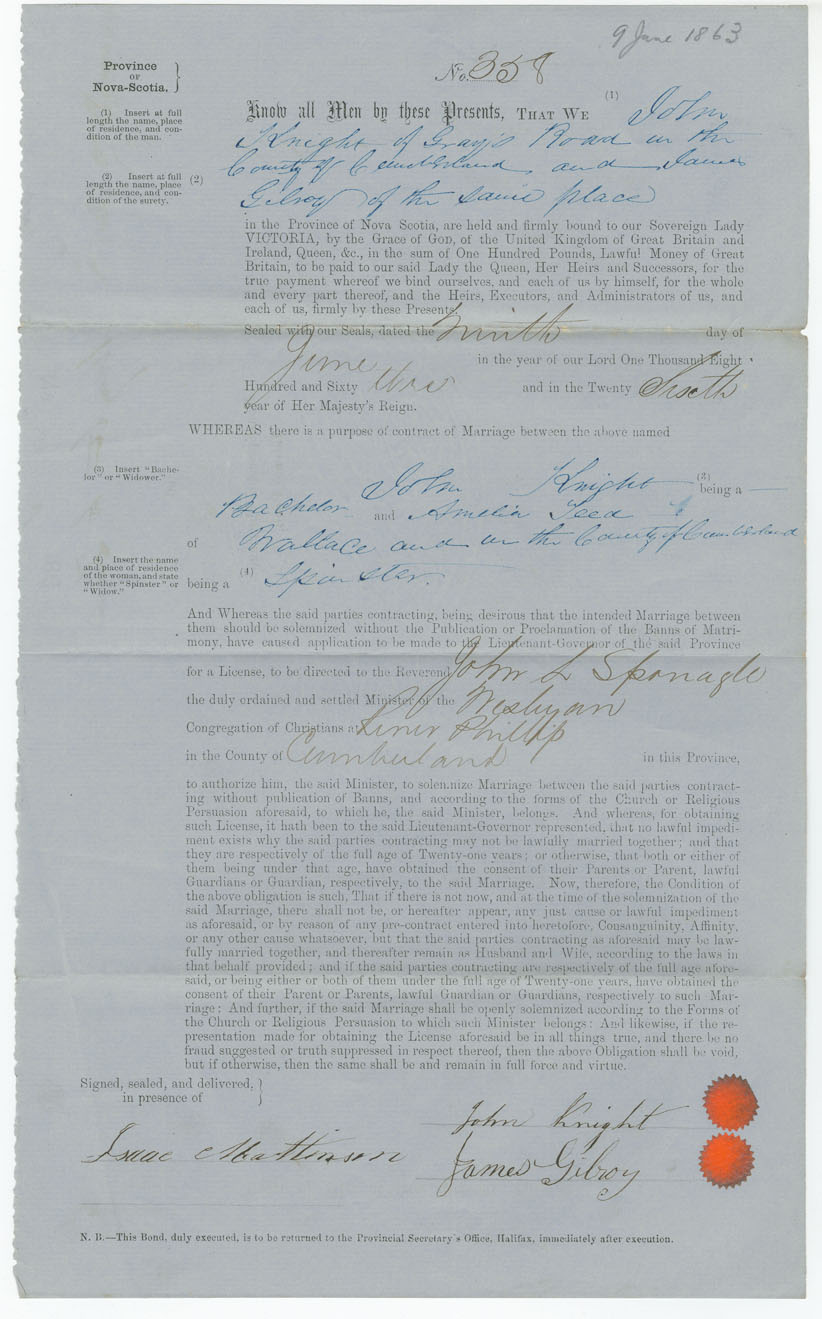 9 June 1863
Province
OF
Nova-Scotia.
No. 358
(1) Insert at full
length the name, place
of residence, and con-
dition of the man.
Know all Men by these Presents, THAT WE (1) John
Knight of Gray's Road in the
(2) Insert at full
length the name, place
of residence, and con-
dition of the surety.
(2) County of Cumberland and James
Gilroy of the same place
in the Province of Nova Scotia, are held and firmly bound to our Sovereign Lady
VICTORIA, by the Grace of GOD, of the United Kingdom of Great Britain and
Ireland, Queen, &c., in the sum of One Hundred Pounds, Lawful Money of Great
Britain, to be paid to our said Lady the Queen, Her Heirs and Successors, for the
true payment whereof we bind ourselves, and each of us by himself, for the whole
and every part thereof, and the Heirs, Executors, and Administrators of us, and
each of us, firmly by these Presents.
Sealed with our Seals, dated the Ninth day of
June in the year of our Lord One Thousand Eight
Hundred and Sixty three and in the Twenty Sixth
year of Her Majesty's Reign.
WHEREAS there is a purpose of contract of Marriage between the above named
(3) Insert "Bache-
lor" or "Widower."
John Knight (3) being a
Bachelor and Amelia Teed
of Wallace and in the County of Cumberland
(4) Insert the name
and place of residence
of the woman, and state
whether "Spinster" or
"Widow."
being a (4) Spinster.
And Whereas the said parties contracting, being desirous that the intended Marriage between
them should be solemnized without the Publication or Proclamation of the Banns of Matri-
mony, have caused application to be made to the Lieutenant-Governor of the said Province
for a License, to be directed to the Reverend John L Sponagle
the duly ordained and settled Minister of the Weslyan
Congregation of Christians at River Phillip
in the County of Cumberland in this Province,
to authorize him, the said Minister, to solemnize Marriage between the said parties contract-
ing without publication of Banns, and according to the forms of the Church or Religious
Persuasion aforesaid, to which he, the said Minister, belongs. And whereas, for obtaining
such License, it hath been to the said Lieutenant-Governor represented, that no lawful impedi-
ment exists why the said parties contracting may not be lawfully married together; and that
they are respectively of the full age of Twenty-one years; or otherwise, that both or either of
them being under that age, have obtained the consent of their Parents or Parent, lawful
Guardians or Guardian, respectively, to the said Marriage. Now, therefore, the Condition of
the above obligation is such, That if there is not now, and at the time of the solemnization of the
said Marriage, there shall not be, or hereafter appear, any just cause or lawful impediment
as aforesaid, or by reason of any pre-contract entered into heretofore, Consanguinity, Affinity,
or any other cause whatsoever, but that the said parties contracting as aforesaid may be law-
fully married together, and thereafter remain as Husband and Wife, according to the laws in
that behalf provided; and if the said parties contracting are respectively of the full age afore-
said, or being either or both of them under the full age of Twenty-one years, have obtained the
consent of their Parent or Parents, lawful Guardian or Guardians, respectively to such Mar-
riage: And further, if the said Marriage shall be openly solemnized according to the Forms of
the Church or Religious Persuasion to which such Minister belongs: And likewise, if the re-
presentation made for obtaining the License aforesaid be in all things true, and there be no
fraud suggested or truth suppressed in respect thereof, then the above Obligation shall be void,
but if otherwise, then the same shall be and remain in full force and virtue.
Signed, sealed, and delivered,
in presence of
John Knight
Isaac Mattinson
James Gilroy
N. B.—This Bond, duly executed, is to be returned to the Provincial Secretary's Office, Halifax, immediately after execution.